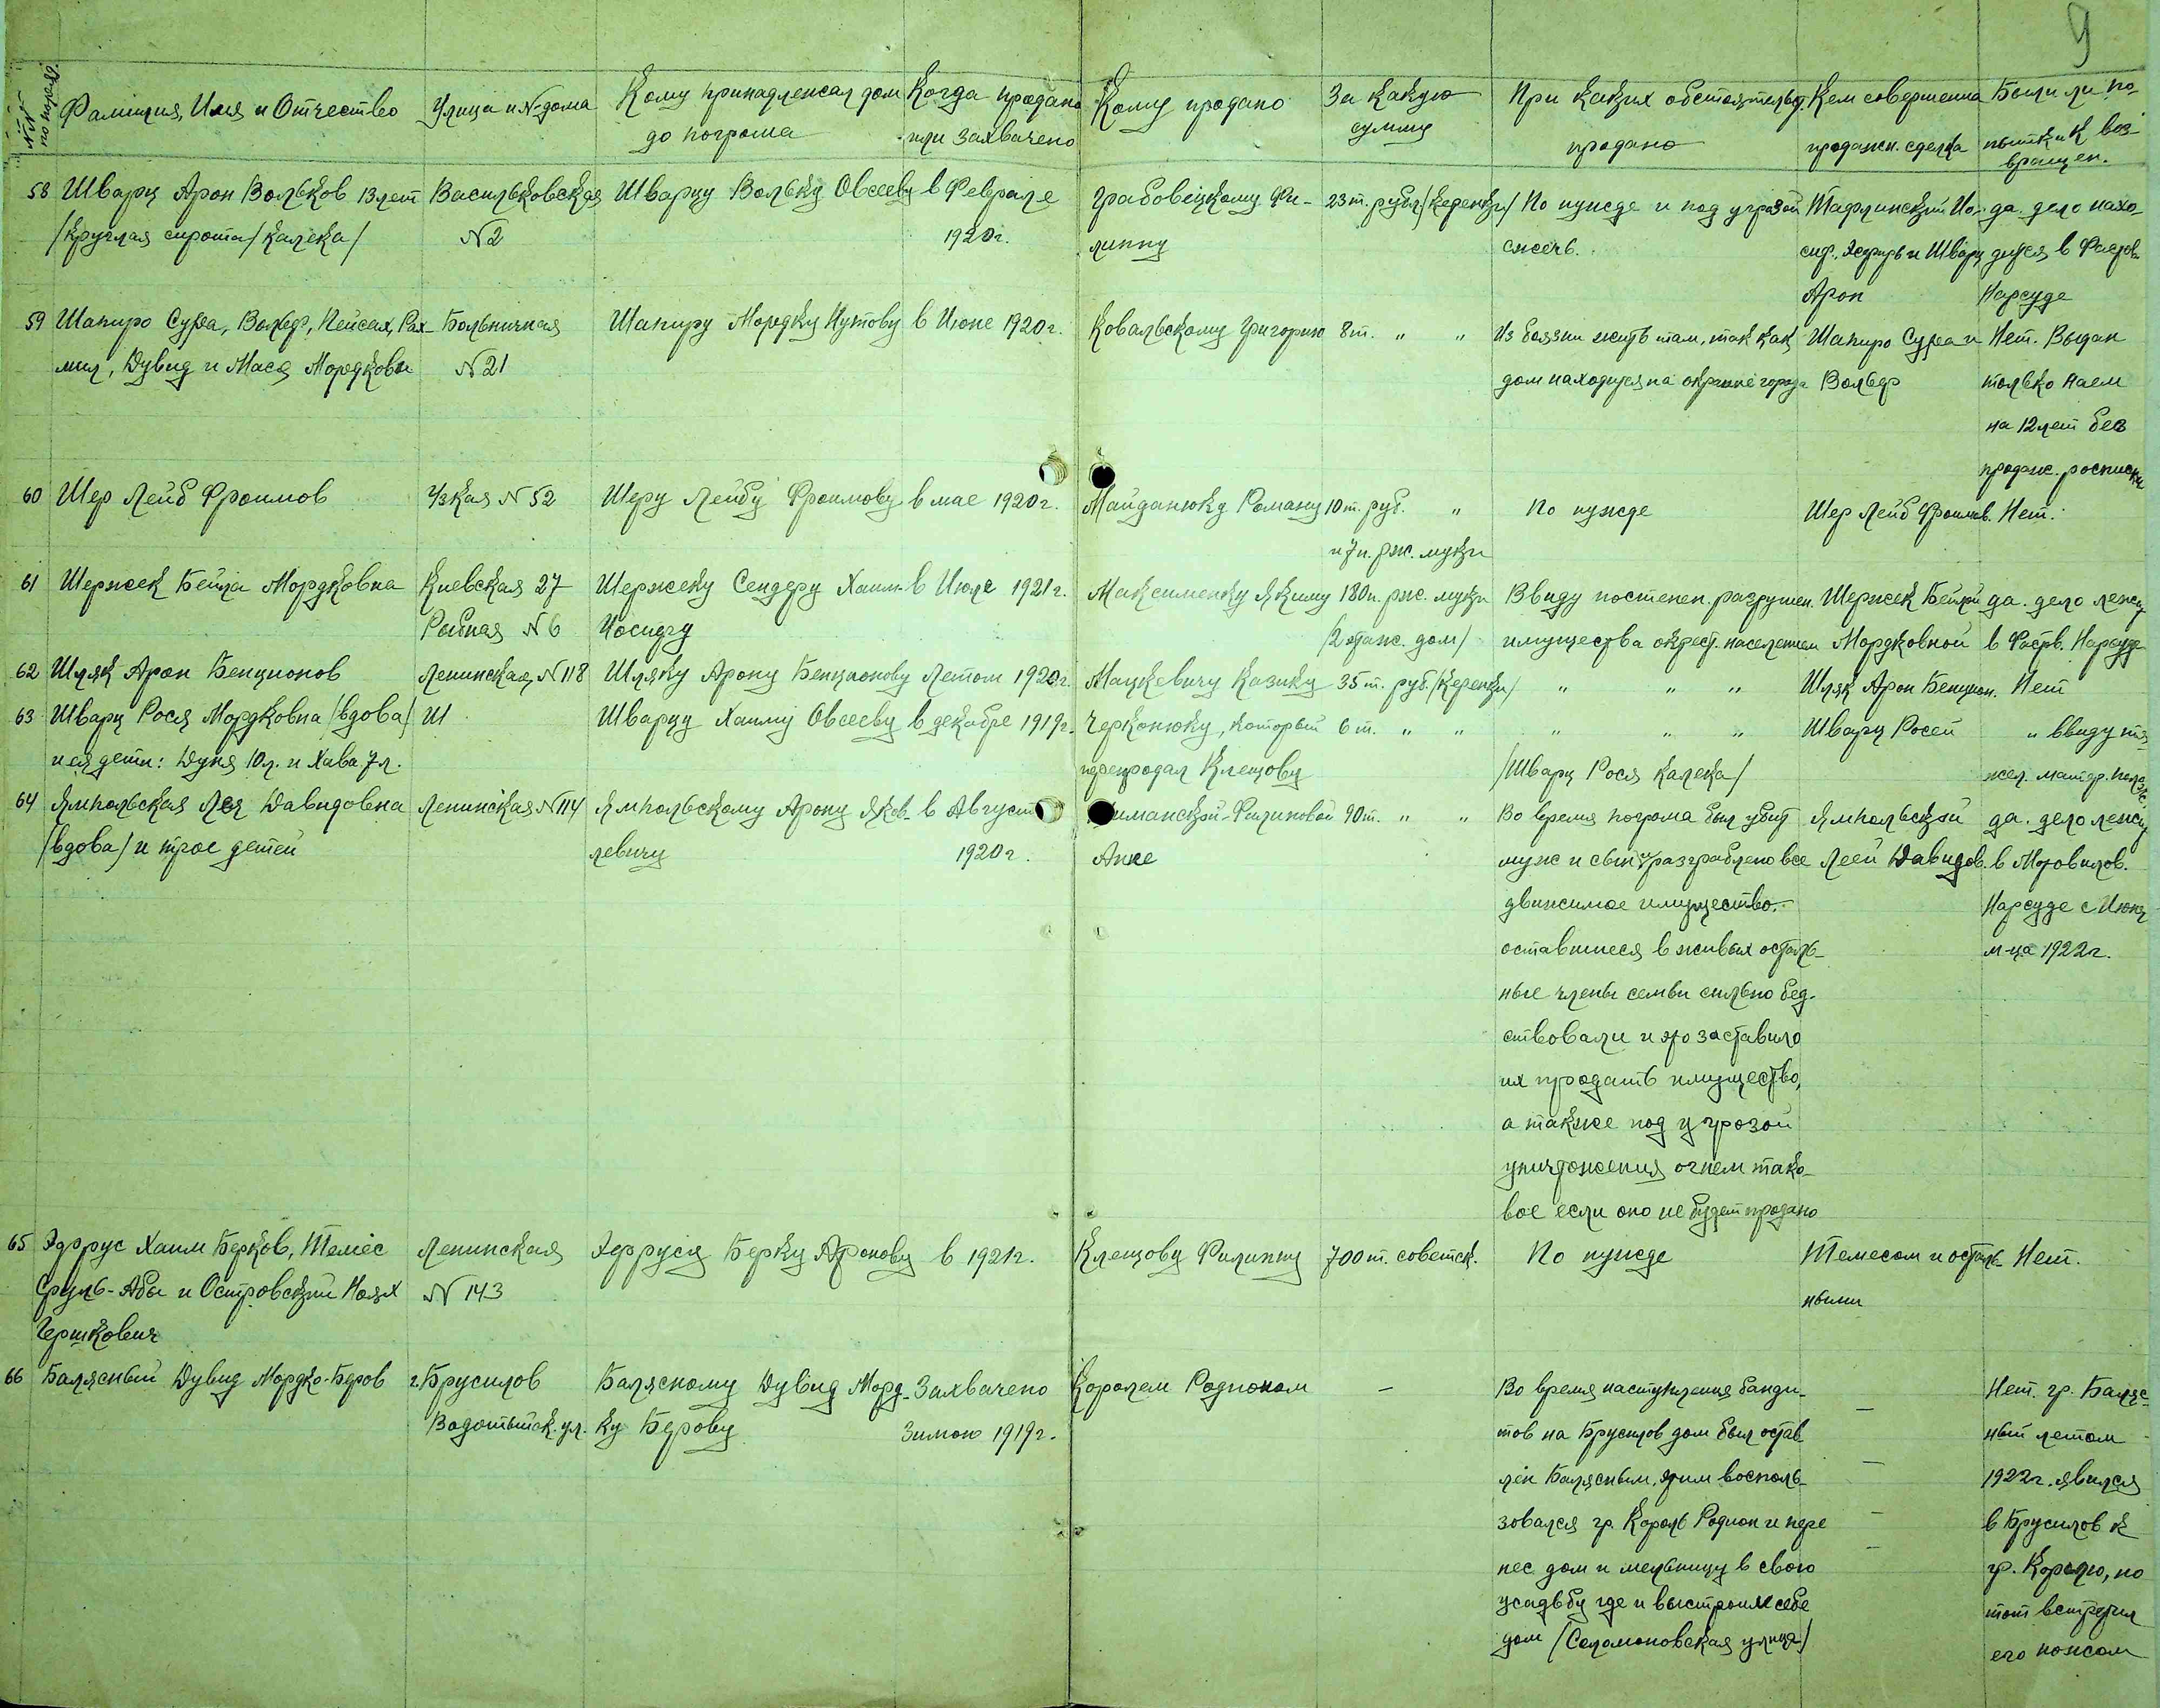 9
№№ по поряд.
Фамилия, Имя и Отчество
Улица и №-дома
Кому принадлежал дом
до погрома
Когда продано
или захвачено
Кому продано
За какую
сумму
При каких обстоятельств.
продано
Кем совершенна
продажн. сделка
Были ли по-
пытки к воз-
вращен.
58 Шварц Арон Вольков 13 лет Васильковская Шварцу Вольку Овсееву в Феврале Грабовецкому Фи- 23 т. рубл. /керенки/ По нужде и под угрозой Тафлинский Ио- да. дело нахо-
/круглая сирота/ калека/ №2 1920 г. липпу сжечь. сиф, и Шварц дится в Фастов.
Арон Нарсуде
59 Шапиро Сура, Вольф, Пейсах, Рах- Больничная Шапиру Мордку Нутову в Июне 1920 г. Ковальскому Григорию 8 т. " " Из боязни жить там, так как Шапиро Сура и Нет. Выдан
мил, Дувид и Мася Мордкови №21 дом находится на окраине города Вольф только наем
на 12 лет без
продаж. росписки
60 Шер Лейб Фроимов Узкая №52 Шеру Лейбу Фроимову в мае 1920 г. Майданюку Роману 10 т. руб. " По нужде Шер Лейб Фроимов. Нет.
и 7 п. рж. муки
61 Шержек Бейла Мордковна Киевская 27 Шержеку Сендеру Хаим- в Июле 1921 г. Максименку Якиму 180 п. рж. муки Ввиду постепен. разрушен. Шержек Бейлой да. дело лежит
Рыбная №6 Иосиду /2 этаж. дом/ имущества окрест. населением Мордковной в Фаств. Нарсуде
62 Шляк Арон Бенционов Ленинская №118 Шляку Арону Бенционову Летом 1920 г. Мацкевичу Казику 35 т. руб. /керенки/ " " " Шляк Арон Бенцион. Нет
63 Шварц Рося Мордковна /вдова/ Ш Шварцу Хаиму Овсееву в декабре 1919 г. Черконюку, который 6 т. " " " " " Шварц Росей " ввиду тя-
и ея дети: Дуня 10 л. и Хава 7 л. перепродал Клещову /Шварц Рося калека/ жел. матер. полож.
64 Ямпольская Лея Давидовна Ленинская №114 Ямпольскому Арону Яков- в Август -иманской-Филиповой 90 т. " " Во время погрома был убит Ямпольской да. дело лежит
/вдова/ и трое детей левичу 1920 г. Анне муж и сын и разграблено все Леей Давидов. в Мотовилов.
движимое имущество. Нарсуде с Июня
оставшиеся в живых осталь- м-ца 1922 г.
ные члены семьи сильно бед-
ствовали и это заставило
их продать имущество,
а также под угрозой
уничтожения огнем тако-
вое если оно не будет продано
65 Эфрус Хаим Берков, Темес Ленинская Эфрусу Берку Аронову в 1921 г. Клещову Филиппу 700 т. советск. По нужде Темесом и осталь- Нет.
Сруль-Абы и Островский Ноях №143 ными
Гершкович
66 Балясный Дувид Мордко-Беров г. Брусилов Балясному Дувид Морд- Захвачено Королем Родионом — Во время наступления банди- — Нет. гр. Баляс-
Водотыйск. ул. ку Берову Зимою 1919 г. тов на Брусилов дом был остав- ный летом
лен Балясным, этим восполь- — 1922 г. явился
зовался гр. Король Родион и пере — в Брусилов к
нес дом и мельницу в свою — гр. Королю, но
усадьбу где и выстроил себе тот встретил
дом /Соломоновская улица/ его ножом